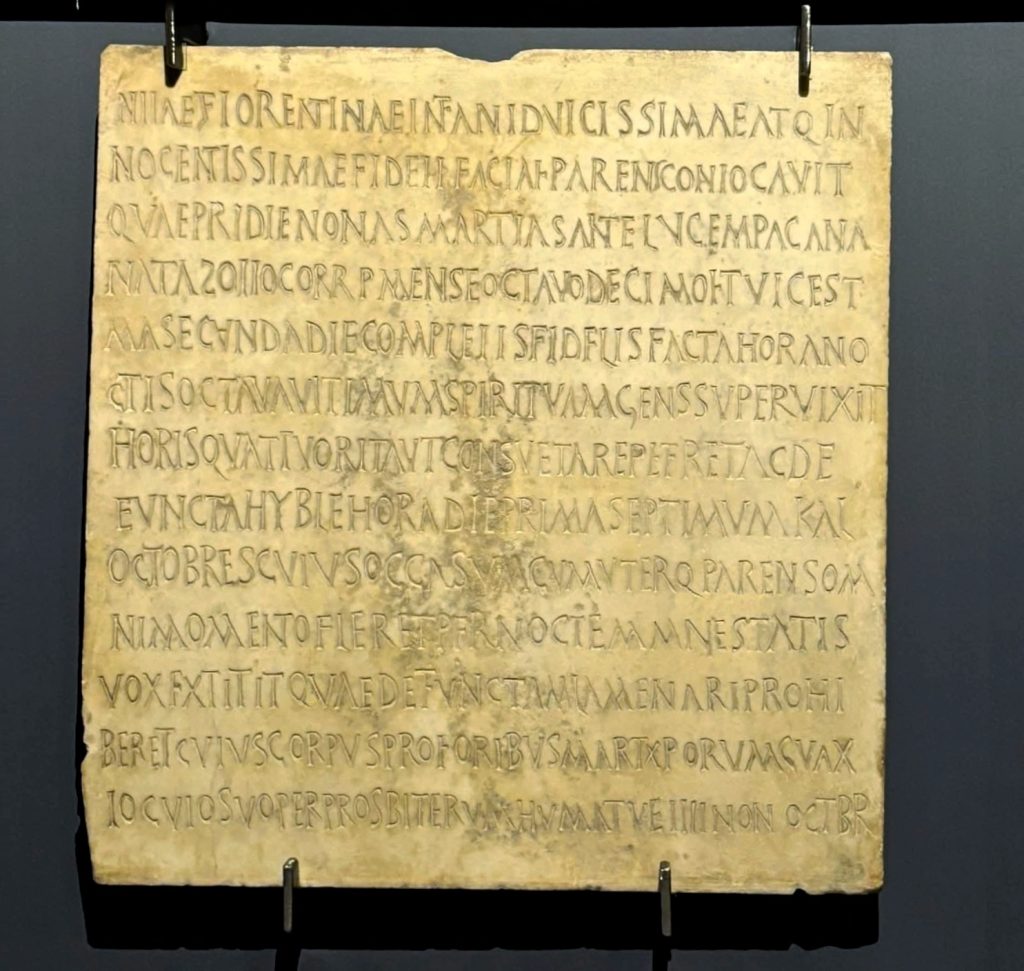 NIIAE FIORENTINAE INFANI DVICISSIMAE ATQ IN
NOCENTISSIMAE FIDELI FACIAE PARENS CONIOCAVIT
QVAE PRIDIE NONAS MARTIAS ANTE LVCEM PACANA
NATA ZOIIO CORR P MENSE OCTAVO DECIMO ET VICEST
MA SECVNDA DIE COMPLEIIS FIDELIS FACTA HORA NO
CTIS OCTAVA VITIMVM SPIRITVM AGENS SVPERVIXIT
HORIS QVATTVOR ITA VT CONSVETA REPETERET AC DE
FVNCTA HYBLE HORA DIE PRIMA SEPTIMVM KAL
OCTOBRES CVIVS OCCASVM CVM VTERQ PARENS OM
NI MOMENTO FIERET PER NOCTEM MAIESTATIS
VOX EXTITIT QVAE DEFVNCTAM LAMENARI PROHI
BERET CVIVS CORPVS PRO FORIBVS MARTXPORVM CVM
IOCVIO SVO PER PROSBITERVM HVMATV E IIII NON OCTBR